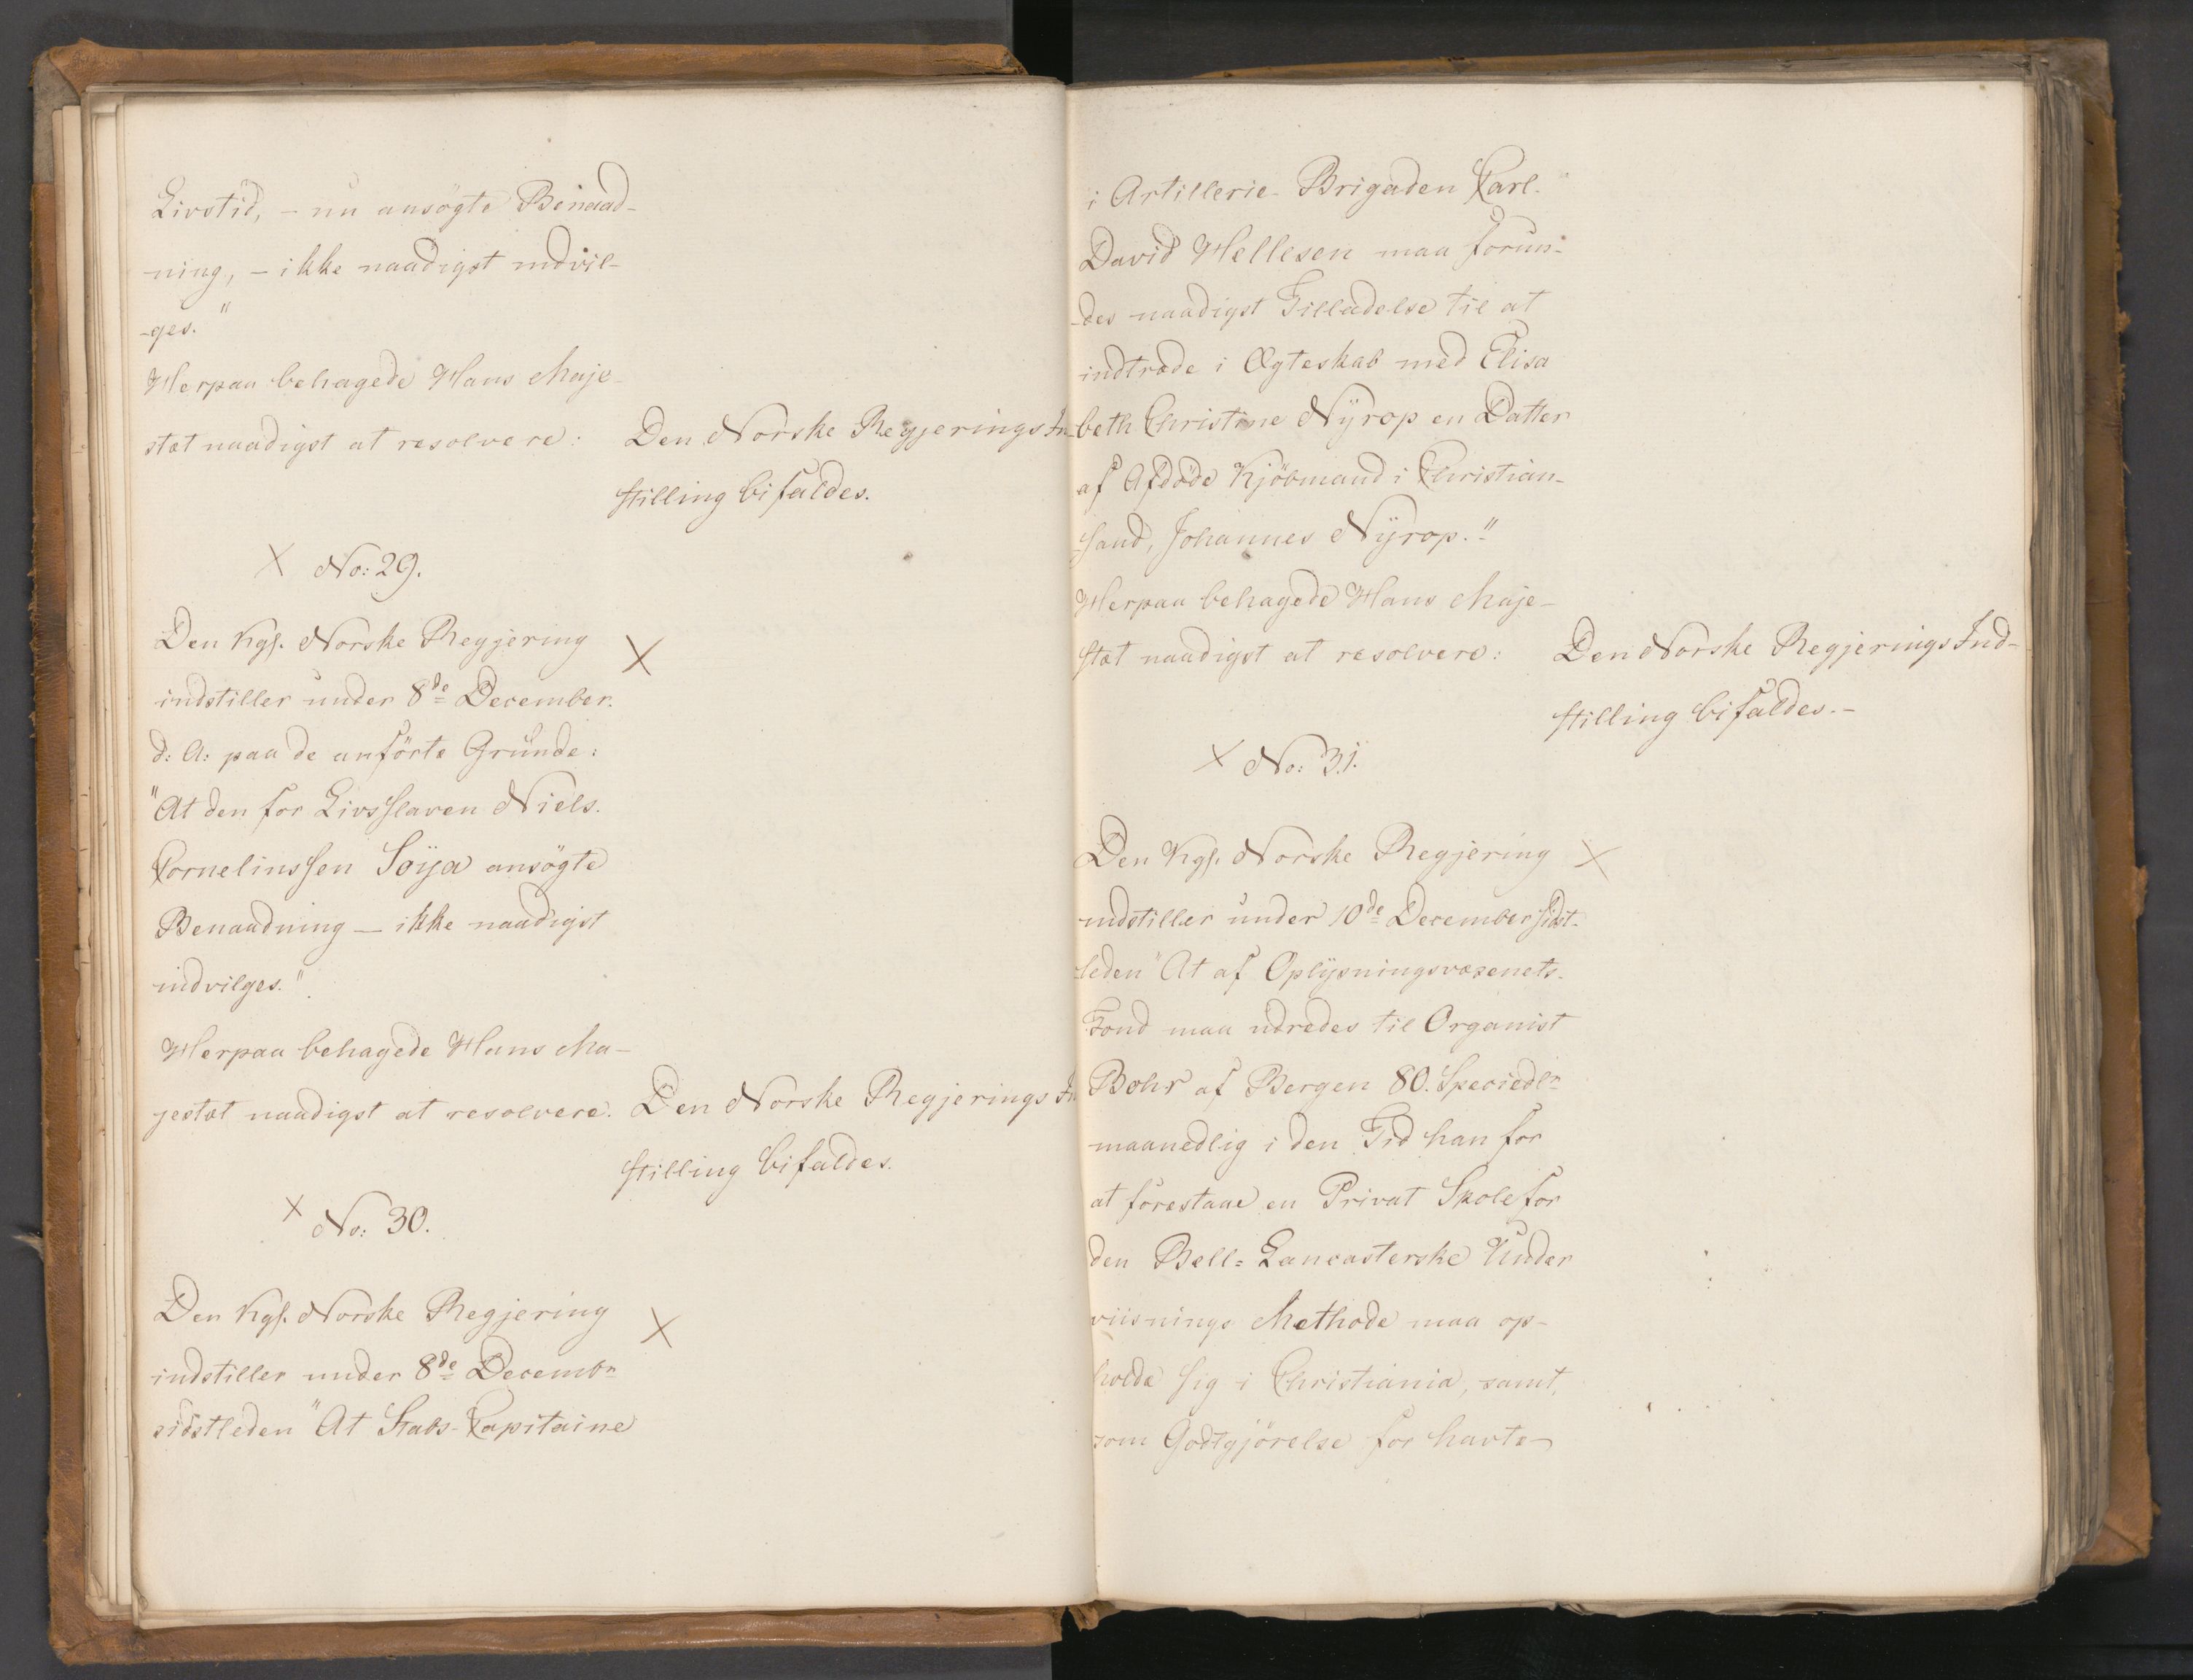 Livstid, - nu ansögte Benaad-
-ning, - ikke naadigst indvil-
-ges."
Herpaa behagede Hans Maje-
stæt naadigst at resolvere:
Den Norske Regjerings In-
stilling bifaldes.
X No: 29.
Den Kgl. Norske Regjering X
indstiller under 8de December
d: A: paa de anförte Grunde:
"At den for Livsslaven Niels
Corneliussen Söya ansögte
Benaadning - ikke naadigst
indvilges."
Herpaa behagede Hans Ma-
jestæt naadigst at resolvere.
Den Norske Regjerings In
stilling bifaldes.
X No: 30.
Den Kgl. Norske Regjering X
indstiller under 8de Decembr
sidstleden "At Stabs-Capitaine
i Artillerie-Brigaden Carl
David Hellesen maa forun-
-des naadigst Tilladelse til at
indtræde i Ægteskab med Elisa
beth Christine Nyrop en Datter
af Afdöde Kjöbmand i Christian-
-sand, Johannes Nyrop."
Herpaa behagede Hans Maje-
stæt naadigst at resolvere:
Den Norske Regjerings Ind-
stilling bifaldes.-
X No: 31.
Den Kgl. Norske Regjering X
indstiller under 10de December sidst-
leden "At af Oplysningsvæsenets
Fond maa udredes til Organist
Bohr af Bergen 80. Speciedlr
maanedlig i den Tid han for
at forestaae en Privat Skole for
den Bell=Lancasterske Under
viisnings Methode maa op-
holde sig i Christiania, samt,
som Godtgjörelse for havte